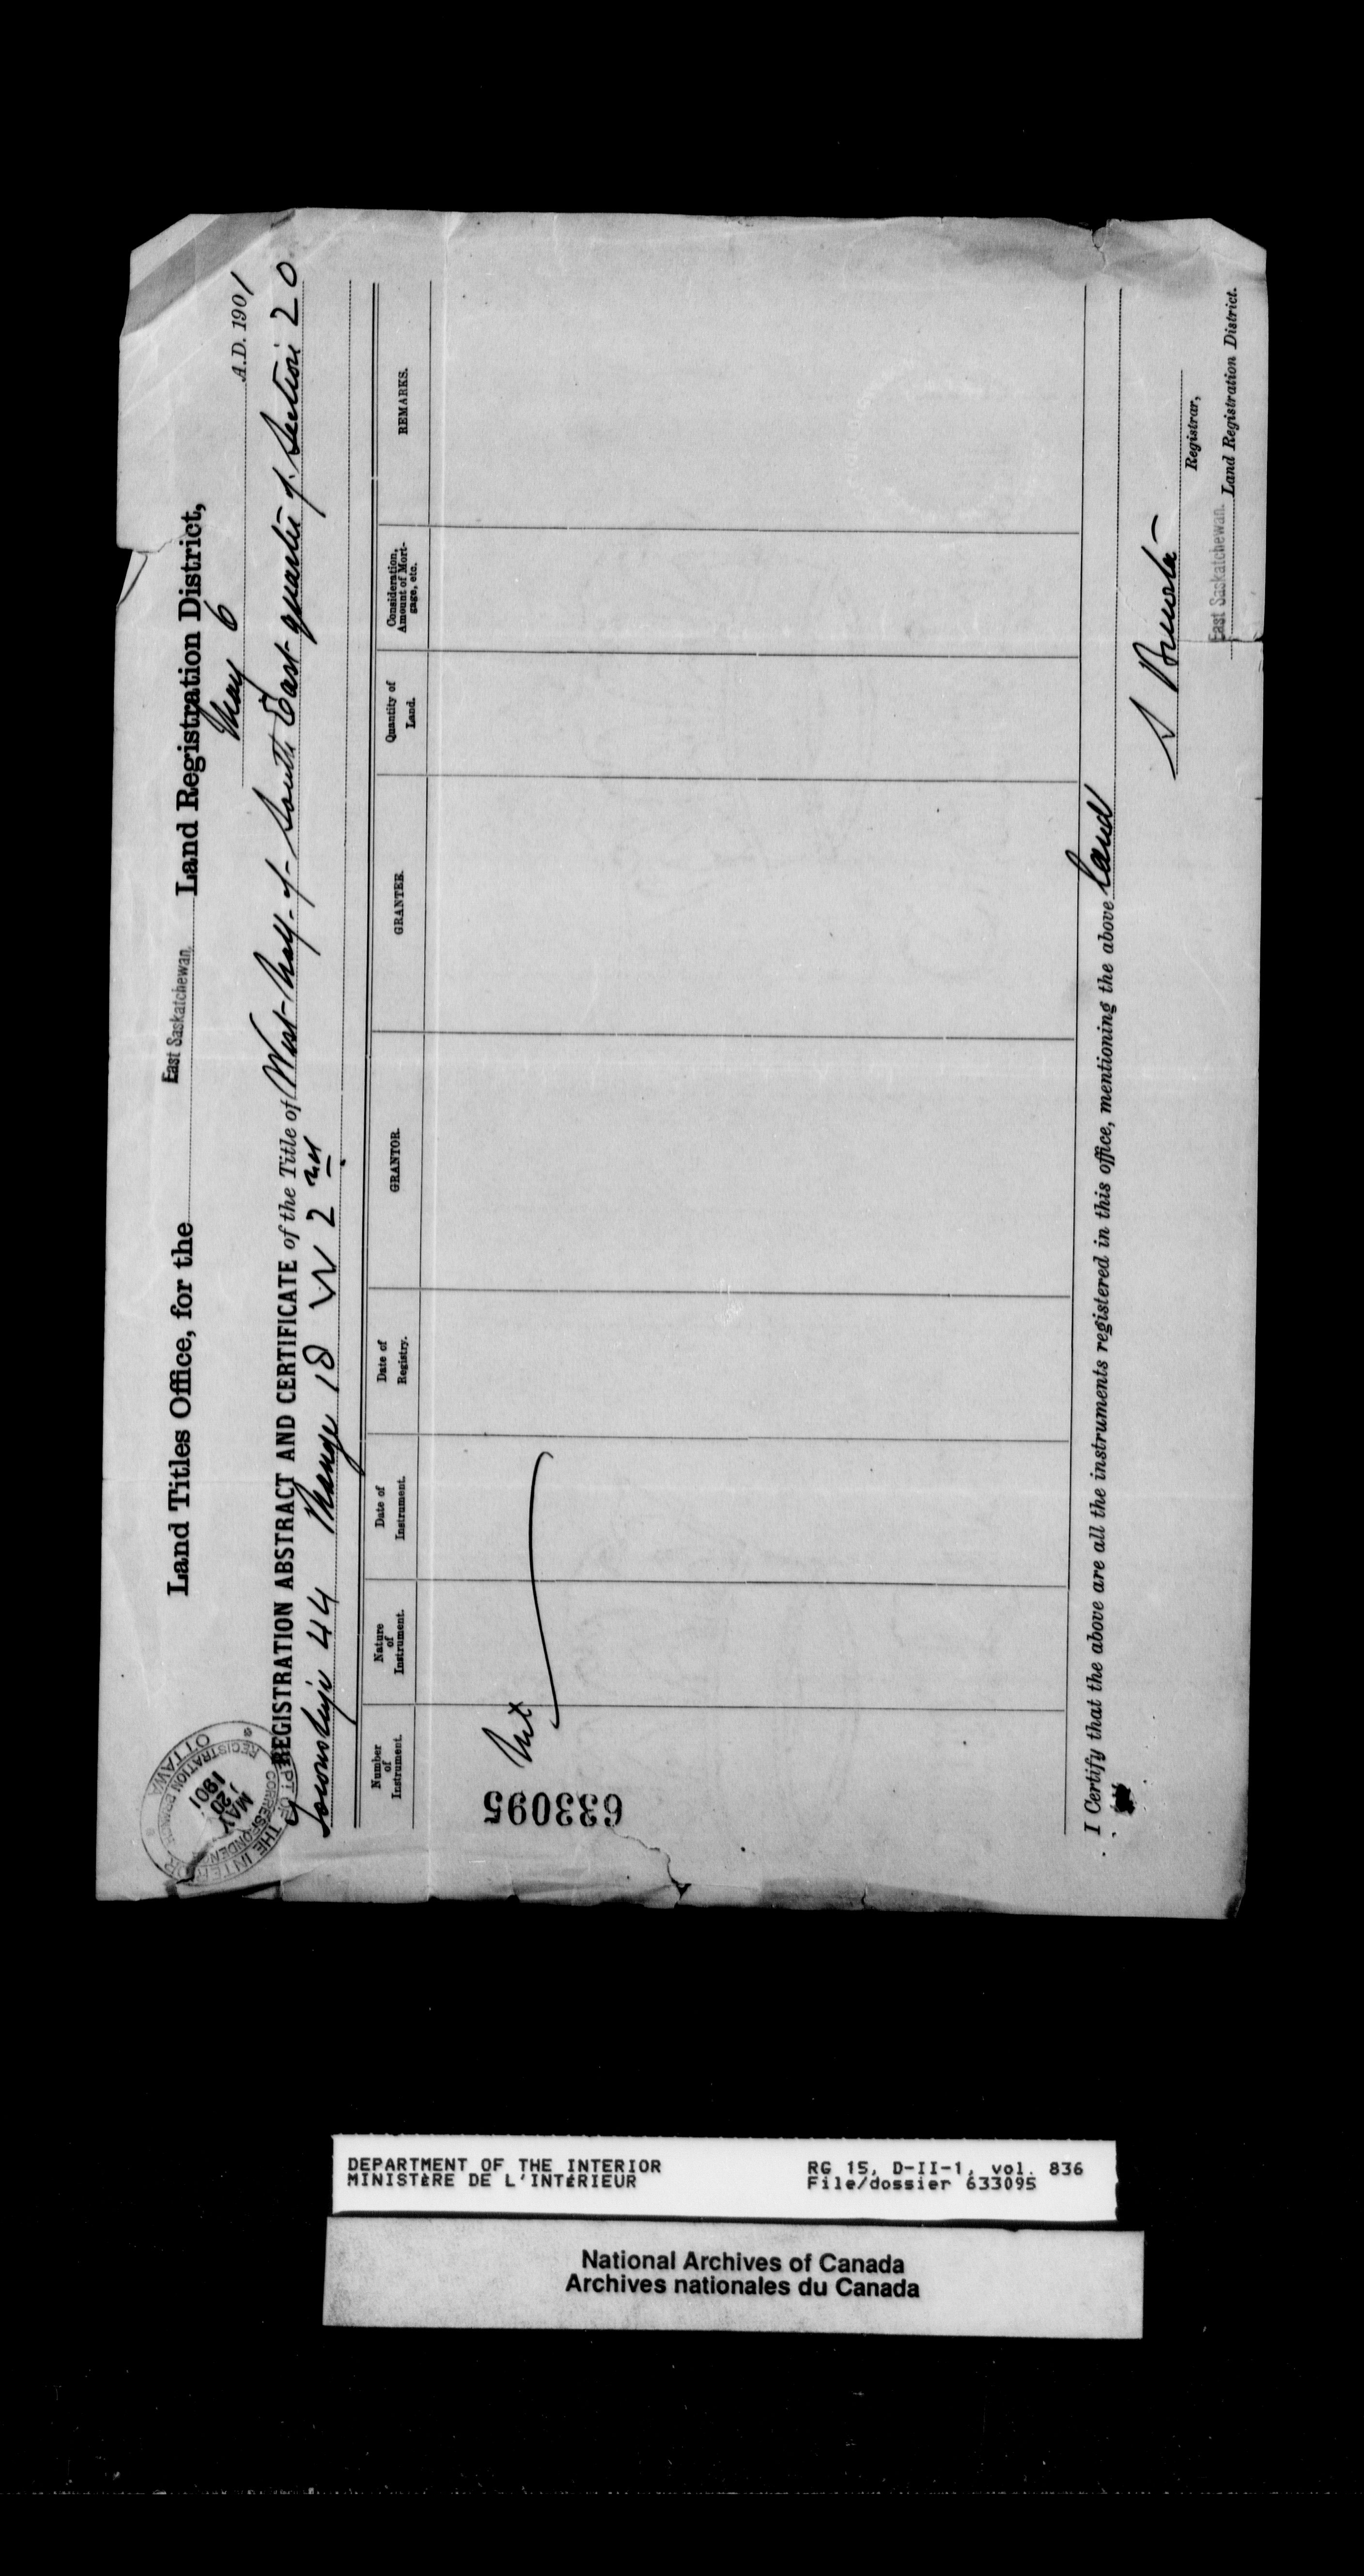 Land Titles Office, for the East Saskatchewan. Land Registration District,
May 6 A.D. 1901
REGISTRATION ABSTRACT AND CERTIFICATE of the Title of West half of South East quarter of Section 20
Township 44 Range 18 W 2nd
Number of Instrument. Nature of Instrument. Date of Instrument. Date of Registry. GRANTOR. GRANTEE. Quantity of Land. Consideration, Amount of Mortgage, etc. REMARKS.
633095
I Certify that the above are all the instruments registered in this office, mentioning the above land
Registrar,
East Saskatchewan. Land Registration District.
DEPT. OF THE INTERIOR
OTTAWA
CORRESPONDENCE
REGISTRATION
MAY
20
1901
DEPARTMENT OF THE INTERIOR
MINISTÈRE DE L'INTÉRIEUR
RG 15, D-II-1, vol. 836
File/dossier 633095
National Archives of Canada
Archives nationales du Canada